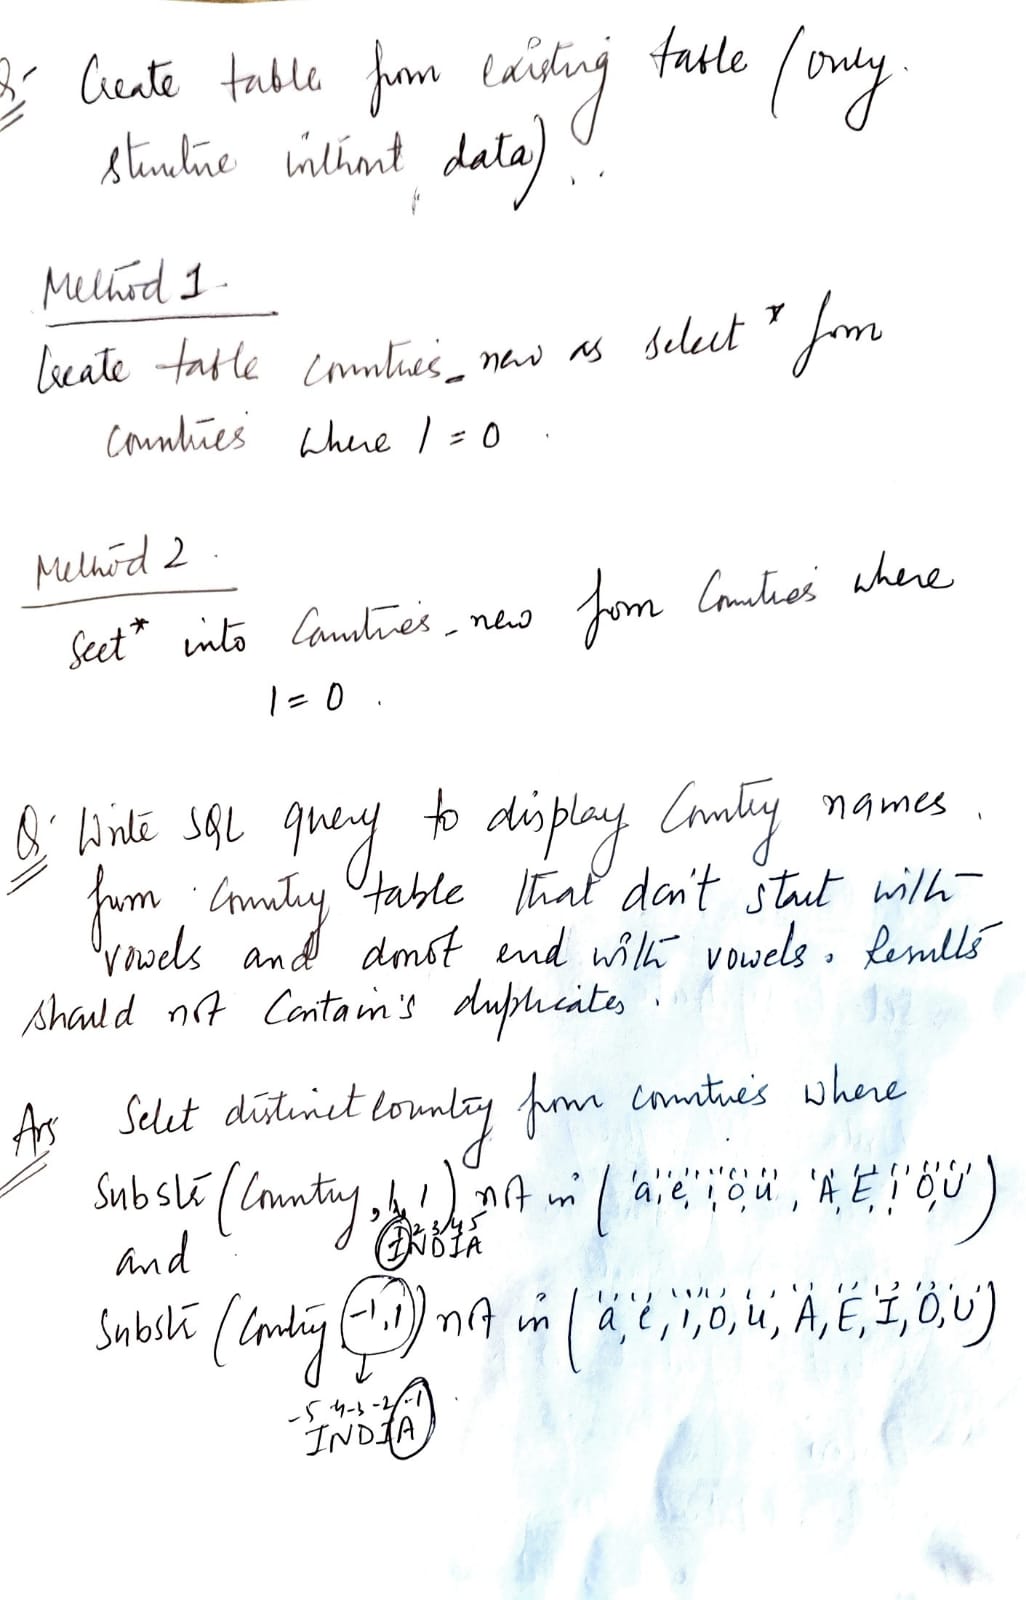 Q- Create table from existing table (only
structure without data).
Method 1-
Create table countries_new as select * from
countries where 1=0.
Method 2.
Seet* into Countries_new from Countries where
1=0.
Q. Write SQL query to display Country names.
from country table that don't start with
vowels and donot end with vowels. Results
should not Contain's duplicates.
Ans Select distinct country from countries where
Substr(Country,1,1) not in ('a','e','i','o','u','A','E','I','O','U')
1 2 3 4 5
and INDIA
Substr(Country -1,1) not in ('a','e','i','o','u','A','E','I','O','U')
-5 -4 -3 -2 -1
INDIA